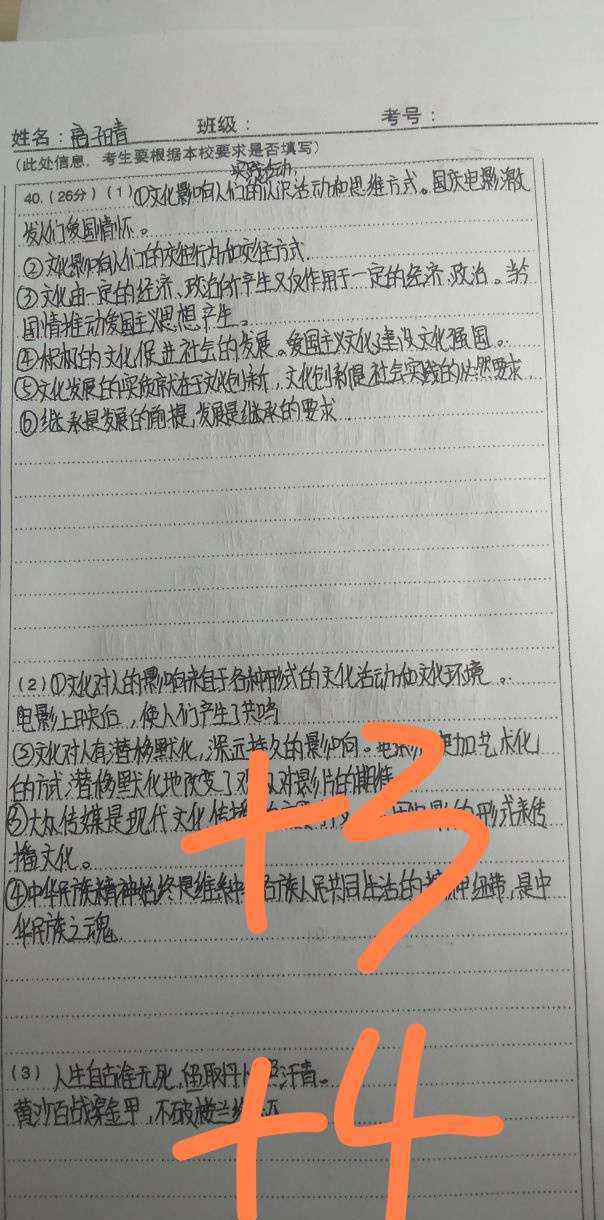 姓名：高子晴 班级： 考号：
（此处信息，考生要根据本校要求是否填写）
实践活动，
40.（26分）（1）①文化影响人们的认识活动和思维方式。国庆电影激
发人们爱国情怀。
②文化影响人们的交往行为和交往方式.
③文化由一定的经济、政治所产生又反作用于一定的经济、政治。当今
国情推动爱国主义思想产生。
④积极的文化促进社会的发展。爱国主义文化建设文化强国。
⑤文化发展的实质就在于文化创新，文化创新是社会实践的必然要求
⑥继承是发展的前提，发展是继承的要求
（2）①文化对人的影响来自于各种形式的文化活动和文化环境。
电影上映后，使人们产生了共鸣
②文化对人有潜移默化，深远持久的影响。更加艺术化
的方式潜移默化地改变了对影片的期待
③大众传媒是现代文化传播的形式来传
播文化。
④中华民族精神始终是维系中各族人民共同生活的精神纽带，是中
华民族之魂
（3）人生自古谁无死，留取丹汗青。
黄沙百战穿金甲，不破楼兰
+3
+4